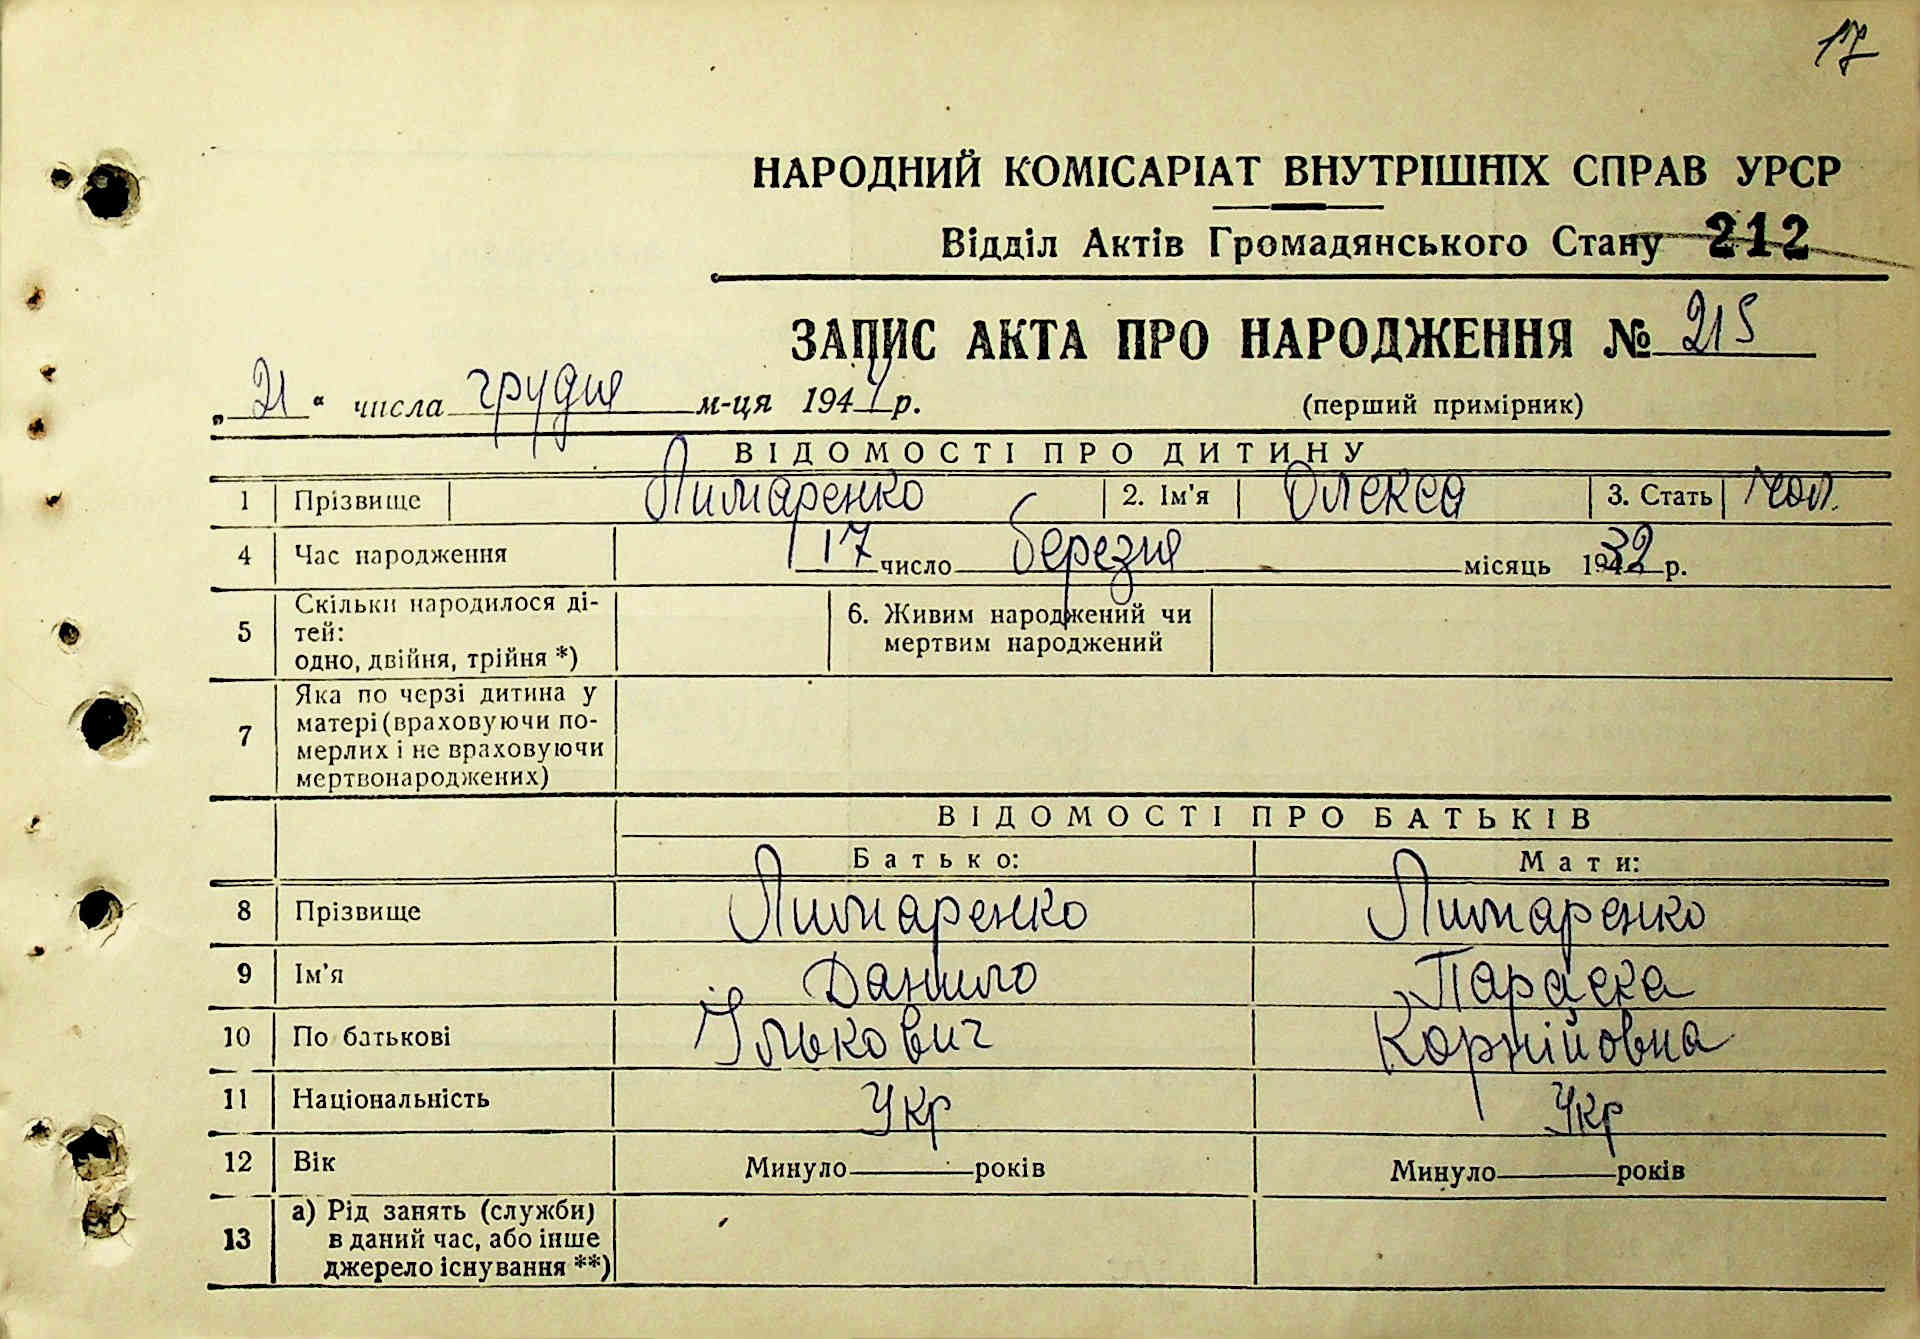 17
НАРОДНИЙ КОМІСАРІАТ ВНУТРІШНІХ СПРАВ УРСР
Відділ Актів Громадянського Стану 212
ЗАПИС АКТА ПРО НАРОДЖЕННЯ № 215
„21“ числа грудня м-ця 1944 р.
(перший примірник)
ВІДОМОСТІ ПРО ДИТИНУ
1 Прізвище Лимаренко 2. Ім'я Олекса 3. Стать чол.
4 Час народження 17 число березня місяць 1932 р.
5 Скільки народилося ді-
тей:
одно, двійня, трійня *)
6. Живим народжений чи
мертвим народжений
7 Яка по черзі дитина у
матері (враховуючи по-
мерлих і не враховуючи
мертвонароджених)
ВІДОМОСТІ ПРО БАТЬКІВ
Батько: Мати:
8 Прізвище Лимаренко Лимаренко
9 Ім'я Данило Параска
10 По батькові Ількович Корнійовна
11 Національність Укр Укр
12 Вік Минуло років Минуло років
13 а) Рід занять (служби)
в даний час, або інше
джерело існування **)